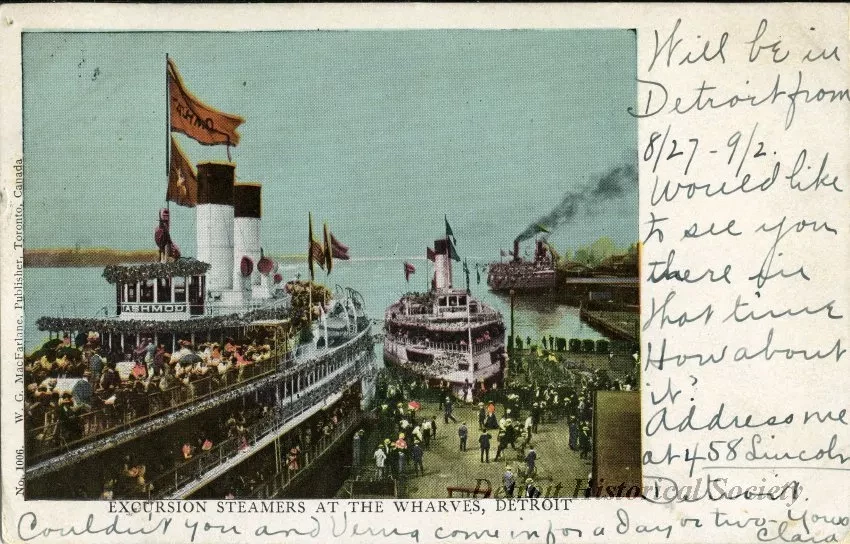 TASHMOO
TASHMOO
No. 1006. W. G. MacFarlane, Publisher, Toronto, Canada
EXCURSION STEAMERS AT THE WHARVES, DETROIT
Will be in
Detroit from
8/27-9/2.
Would like
to see you
there in
that time
How about
it?
Address me
at 458 Lincoln
Detroit.
Detroit Historical Society
Couldn't you and Verna come in for a day or two - Yours
Clara